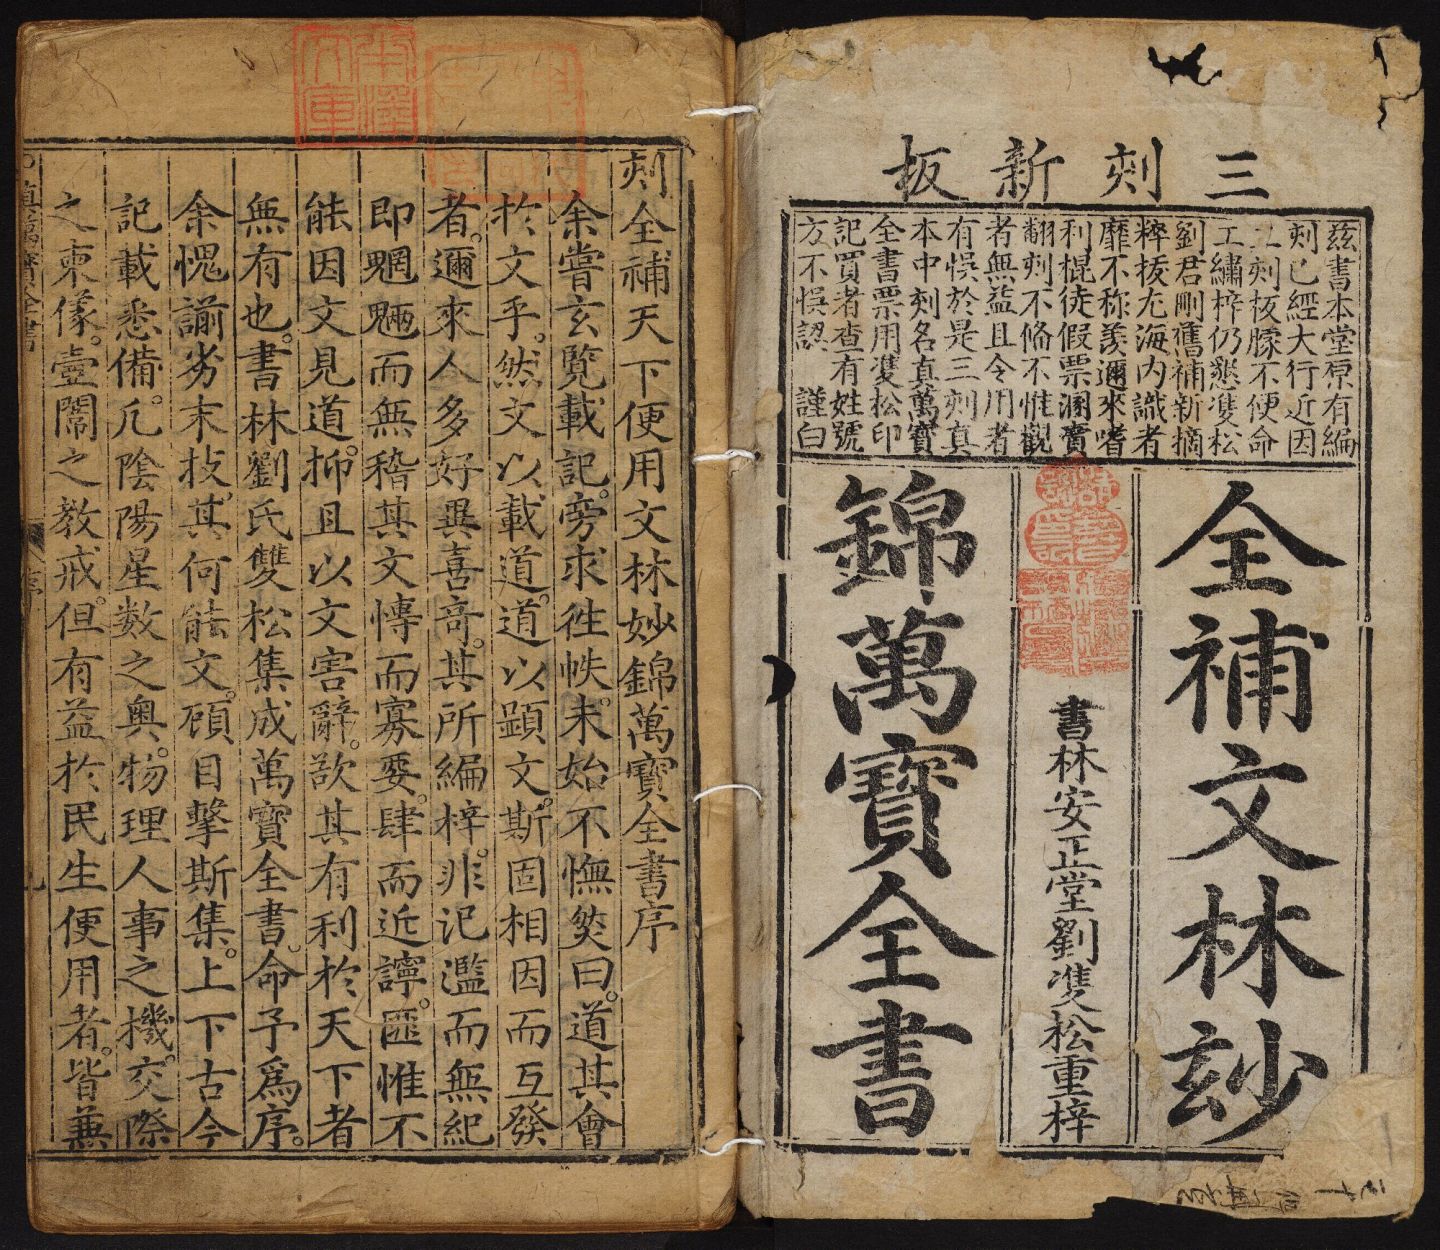 三刻新板
茲書本堂原有編
刻已經大行近因
二刻板朦不便命
工繡梓仍懇雙松
劉君刪舊補新摘
粹拔尤海內識者
靡不称羨邇來嗜
利棍徒假票溷賣
翻刻不偹不惟觀
者無益且令用者
有悞於是三刻真
本中刻名真萬寶
全書票用雙松印
記買者查有姓號
方不悞認 謹白
全補文林玅
書林安正堂劉雙松重梓
錦萬寶全書
刻全補天下便用文林妙錦萬寶全書序
余嘗玄覧載記。旁求徃帙。未始不憮然曰。道其會
於文乎。然文以載道。道以顕文。斯固相因而互發
者。邇來人多好異喜奇。其所編梓。非汜濫而無紀
即魍魎而無稽。其文慱而寡要。肆而近謣。匪惟不
能因文見道。抑且以文害辭。欲其有利於天下者
無有也。書林劉氏雙松集成萬寶全書。命予爲序。
余愧謭劣末技。其何能文。頋目擊斯集。上下古今
記載悉備。凢陰陽星数之奧。物理人事之機。交際
之柬㨾。壼閫之教戒。但有益於民生便用者。皆兼